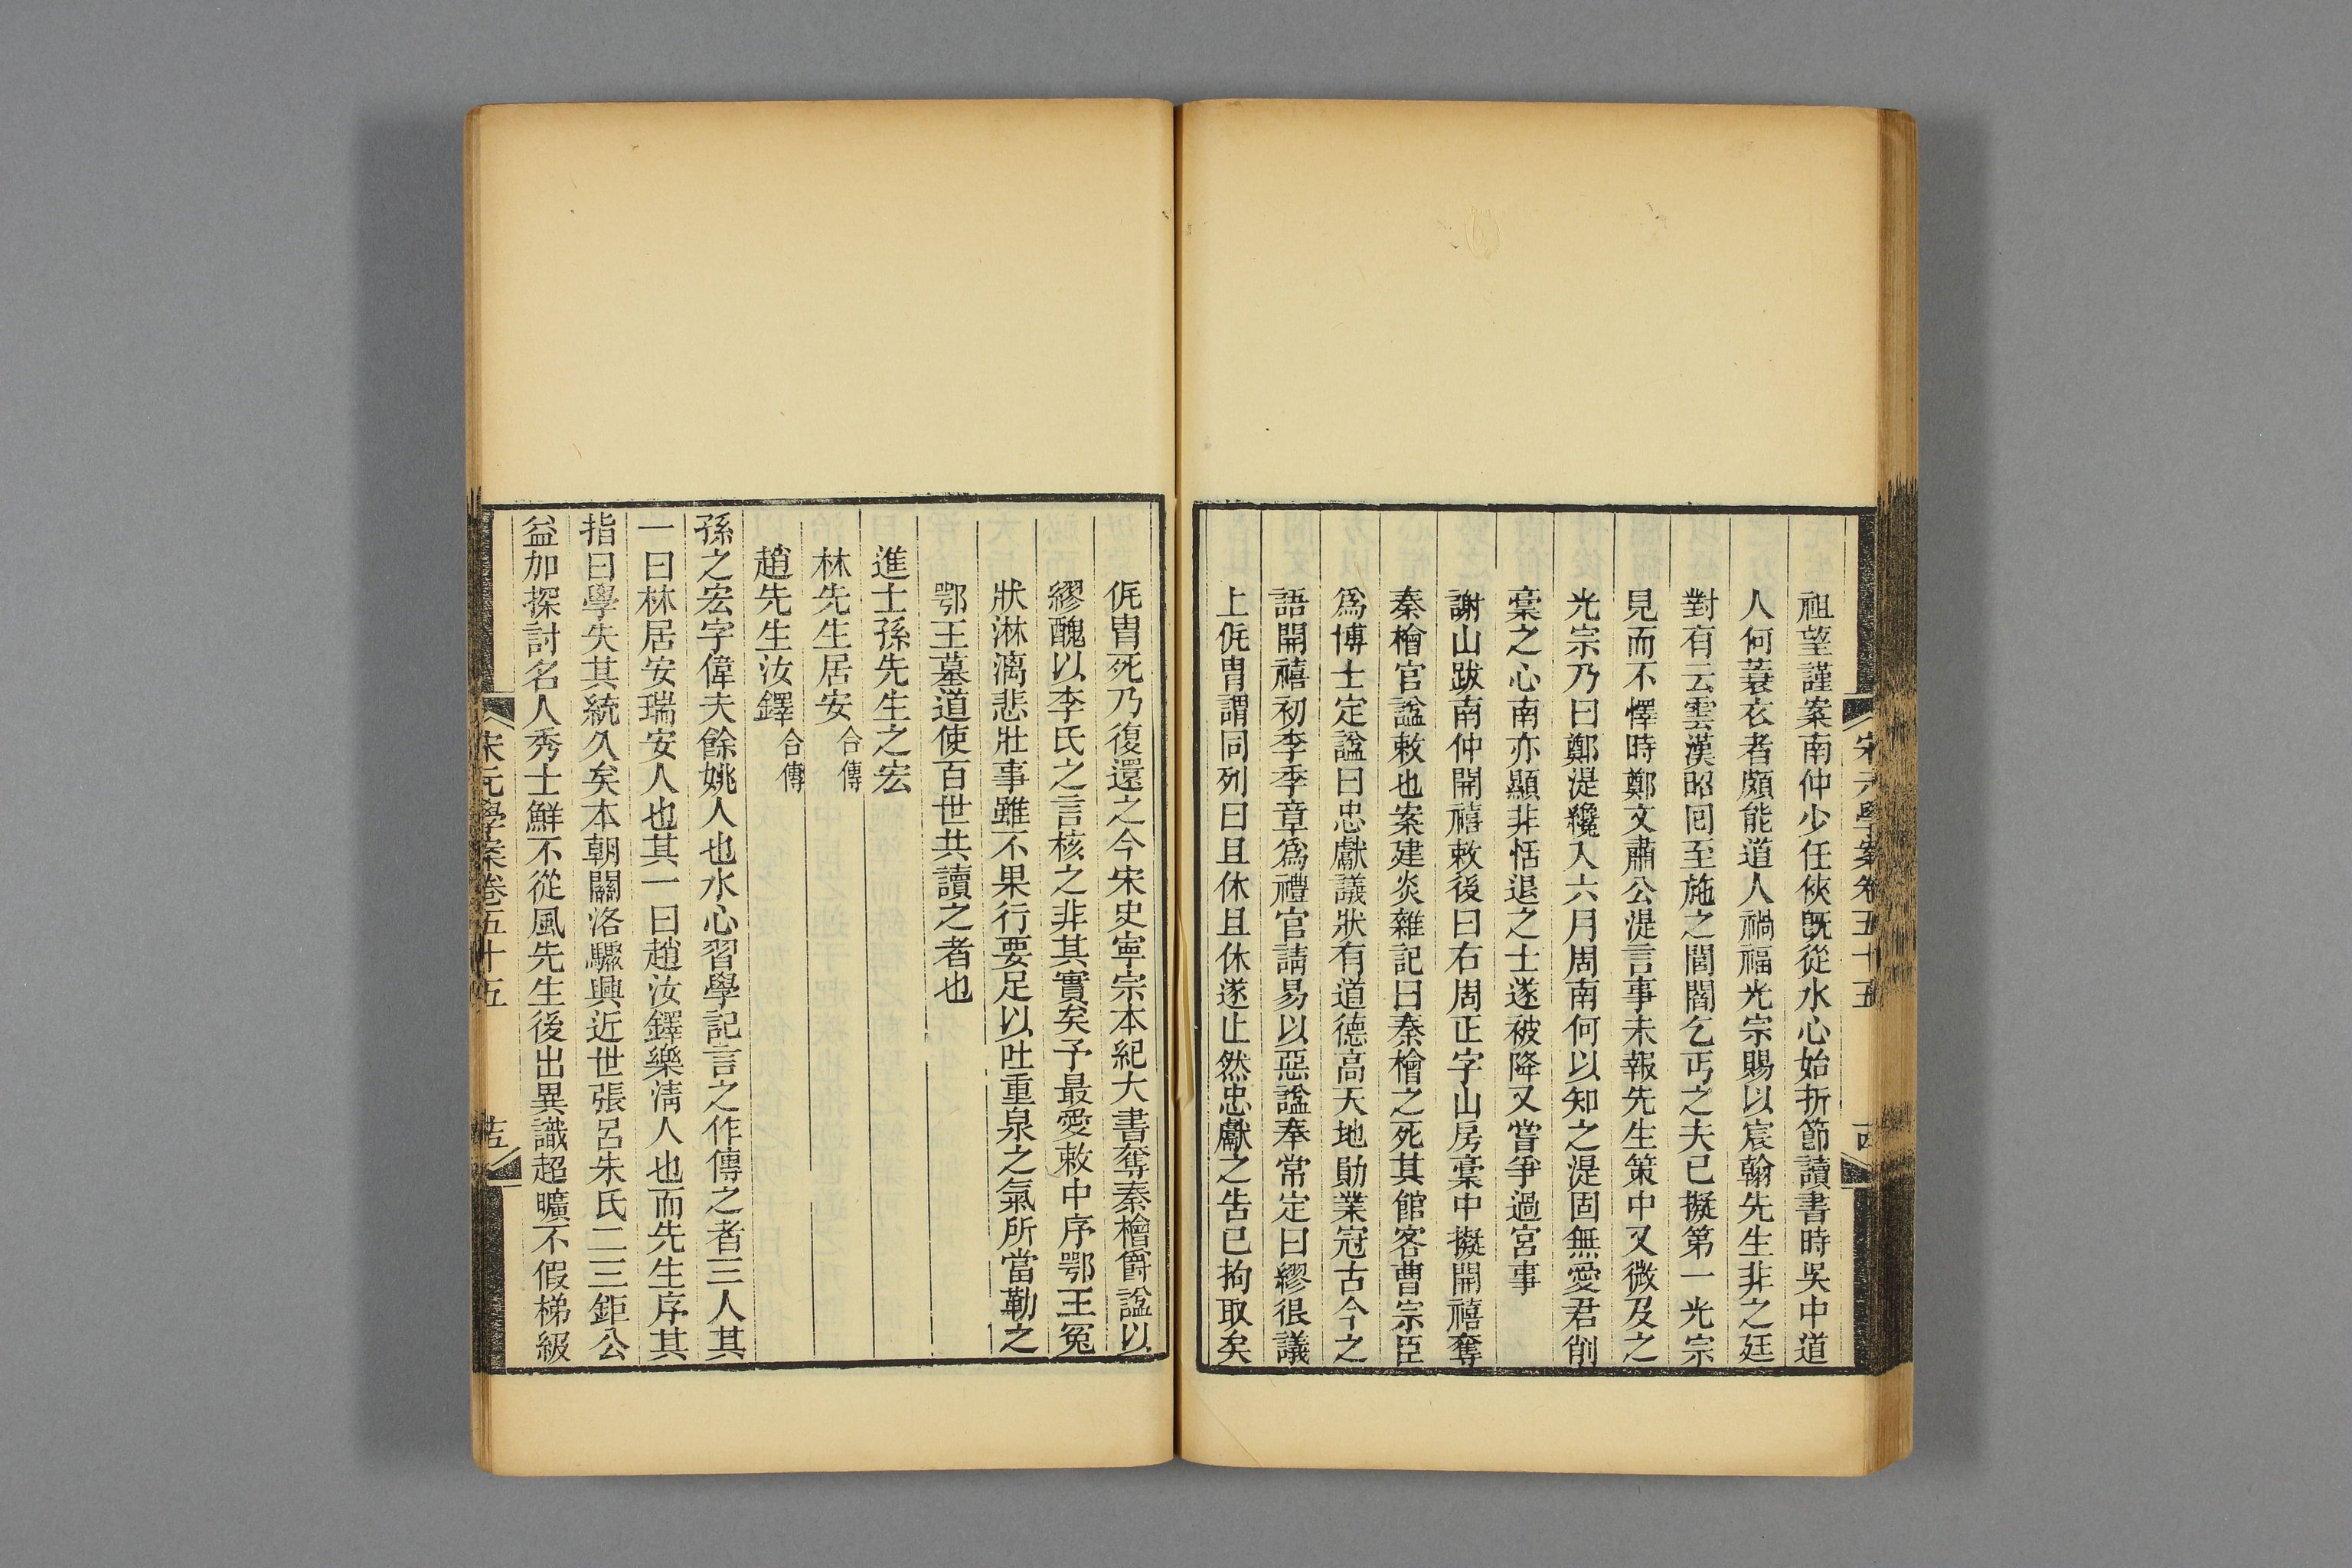 宋元學案卷五十五
祖望謹案南仲少任俠旣從水心始折節讀書時吳中道
人何蓑衣者頗能道人禍福光宗賜以宸翰先生非之廷
對有云雲漢昭回至施之閭閻乞丐之夫已擬第一光宗
見而不懌時鄭文肅公湜言事未報先生策中又微及之
光宗乃曰鄭湜纔入六月周南何以知之湜固無愛君削
稾之心南亦顯非恬退之士遂被降又嘗爭過宮事
謝山跋南仲開禧敕後曰右周正字山房稾中擬開禧奪
秦檜官諡敕也案建炎雜記曰秦檜之死其館客曹宗臣
爲博士定諡曰忠獻議狀有道德高天地勛業冠古今之
語開禧初李季章爲禮官請易以惡諡奉常定曰繆很議
上侂胄謂同列曰且休且休遂止然忠獻之告已拘取矣
侂胄死乃復還之今宋史寧宗本紀大書奪秦檜爵諡以
繆醜以李氏之言核之非其實矣予最愛敕中序鄂王冤
狀淋漓悲壯事雖不果行要足以吐重泉之氣所當勒之
鄂王墓道使百世共讀之者也
進士孫先生之宏
林先生居安合傳
趙先生汝鐸合傳
孫之宏字偉夫餘姚人也水心習學記言之作傳之者三人其
一曰林居安瑞安人也其一曰趙汝鐸樂淸人也而先生序其
指曰學失其統久矣本朝關洛驟興近世張呂朱氏二三鉅公
益加探討名人秀士鮮不從風先生後出異識超曠不假梯級
宋元學案卷五十五